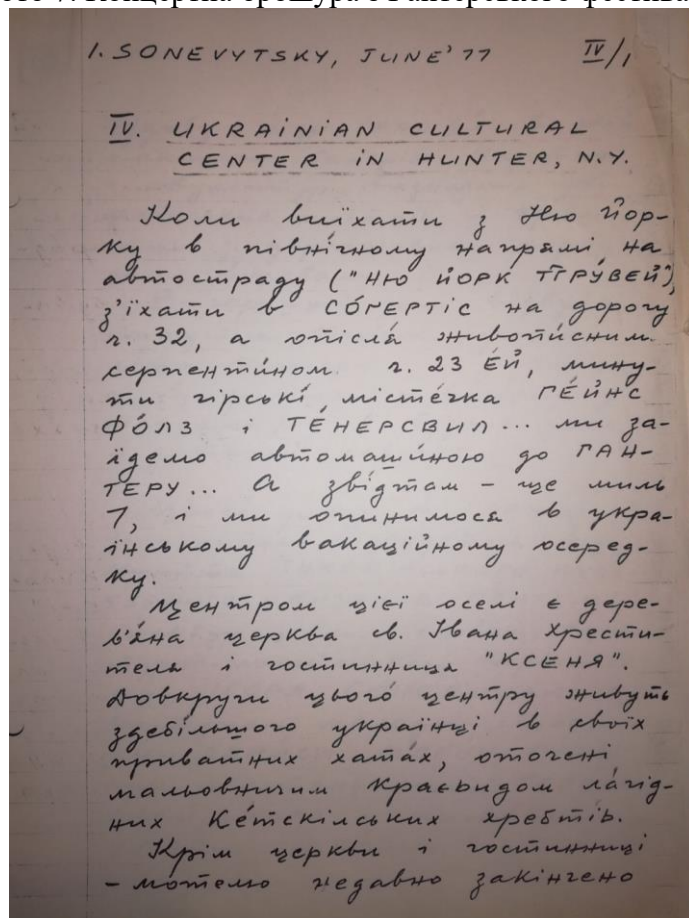 I. SONEVYTSKY, JUNE'77 IV/1
IV. UKRAINIAN CULTURAL
CENTER IN HUNTER, N.Y.
Коли виїхати з Ню Йор-
ку в північному напрямі на
автостраду ("НЮ ЙОРК ТРУ́ВЕЙ"),
з'їхати в СО́ҐЕРТІС на дорогу
ч. 32, а опісля́ живопи́сним
серпенти́ном ч. 23 ЕЙ, мину́-
ти гірські́ місте́чка ГЕ́ЙНС
ФОЛЗ і ТЕ́НЕРСВИЛ... ми за-
їдемо автомаши́ною до ГАН-
ТЕРУ... А зві́дтам - ще миль
7, і ми опинимося в укра-
їнському вакаці́йному осеред-
ку.
Центром цієї оселі є дере-
в'я́на церква св. Івана Хрести-
теля і гостинниця "КСЕНЯ".
Довкруги цього́ центру живуть
здебі́льшого українці в своїх
приватних хата́х, оточені
мальовничим краєвидом ла́гід-
них Ке́тскілських хребтів.
Крім церкви і гостинниці
- мотелю недавно закінчено